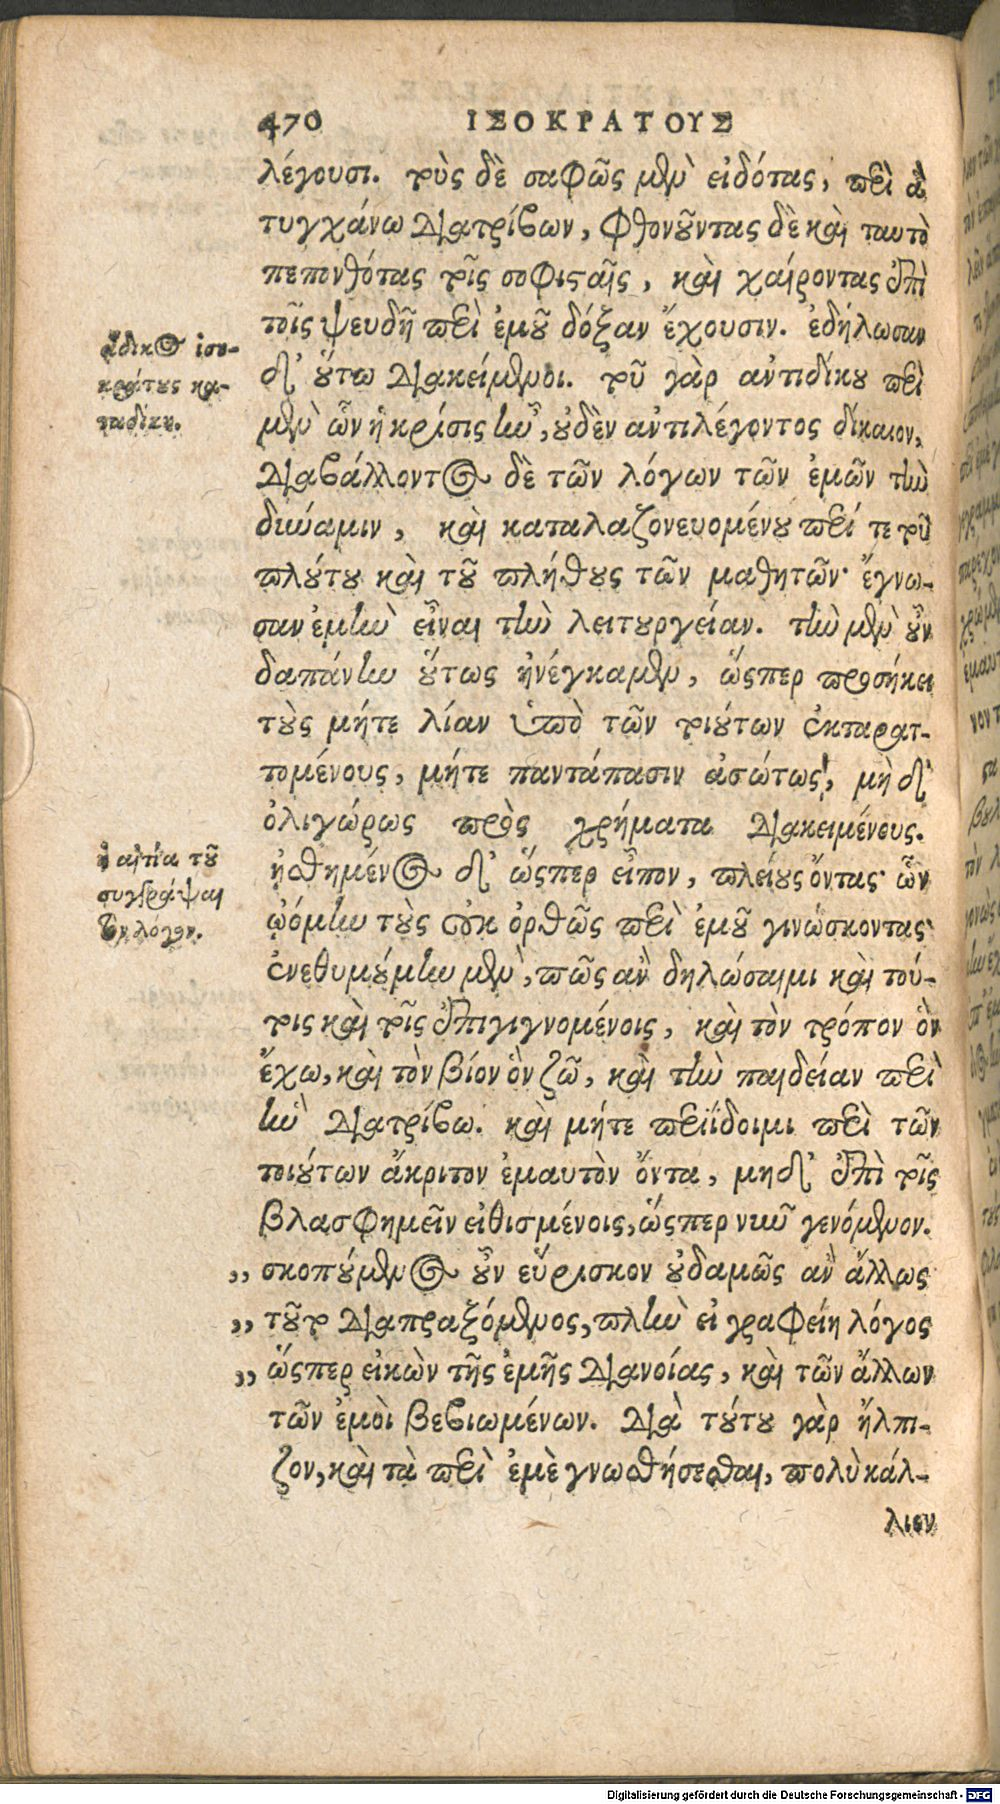 470 ΙΣΟΚΡΑΤΟΥΣ
λέγουσι. τοὺς δὲ σαφῶς μὲν εἰδότας, περὶ ἃ
τυγχάνω διατρίβων, φθονοῦντας δὲ καὶ ταυτὸ
πεπονθότας τοῖς σοφισταῖς, καὶ χαίροντας ἐπὶ
τοῖς ψευδῆ περὶ ἐμοῦ δόξαν ἔχουσιν. ἐδήλωσαν
δ' οὕτω διακείμενοι. τοῦ γὰρ ἀντιδίκου περὶ
μὲν ὧν ἡ κρίσις ἦν, οὐδὲν ἀντιλέγοντος δίκαιον,
διαβάλλοντος δὲ τῶν λόγων τῶν ἐμῶν τὴν
δύναμιν, καὶ καταλαζονευομένου περί τε τοῦ
πλούτου καὶ τοῦ πλήθους τῶν μαθητῶν· ἔγνω-
σαν ἐμὴν εἶναι τὴν λειτουργείαν. τὴν μὲν οὖν
δαπάνην οὕτως ἠνέγκαμεν, ὥςπερ προσήκει
τοὺς μήτε λίαν ὑπὸ τῶν τοιούτων ἐκταρατ-
τομένους, μήτε παντάπασιν ἀσώτως, μὴ δ'
ὀλιγώρως πρὸς χρήματα διακειμένους.
ᾐσθημένος δ' ὥςπερ εἶπον, πλείους ὄντας ὧν
ᾠόμην τοὺς οὐκ ὀρθῶς περὶ ἐμοῦ γινώσκοντας·
ἐνεθυμούμην μὲν, πῶς ἂν δηλώσαιμι καὶ τού-
τοις καὶ τοῖς ἐπιγιγνομένοις, καὶ τὸν τρόπον ὃν
ἔχω, καὶ τὸν βίον ὃν ζῶ, καὶ τὴν παιδείαν περὶ
ἣν διατρίβω. καὶ μήτε περιΐδοιμι περὶ τῶν
τοιούτων ἄκριτον ἐμαυτὸν ὄντα, μηδ' ἐπὶ τοῖς
βλασφημεῖν εἰθισμένοις, ὥςπερ νῦν γενόμενον.
,, σκοπούμενος οὖν εὕρισκον οὐδαμῶς ἂν ἄλλως
,, τοῦτο διαπραξόμενος, πλὴν εἰ γραφείη λόγος
,, ὥςπερ εἰκὼν τῆς ἐμῆς διανοίας, καὶ τῶν ἄλλων
τῶν ἐμοὶ βεβιωμένων. διὰ τούτου γὰρ ἤλπι-
ζον, καὶ τὰ περὶ ἐμὲ γνωσθήσεσθαι, πολὺ κάλ-
λιον
ἄδικος ἰσο-
κράτους κα-
ταδίκη.
ἡ αἰτία τοῦ
συγγράψαι
τὸν λόγον.
Digitalisierung gefördert durch die Deutsche Forschungsgemeinschaft - DFG